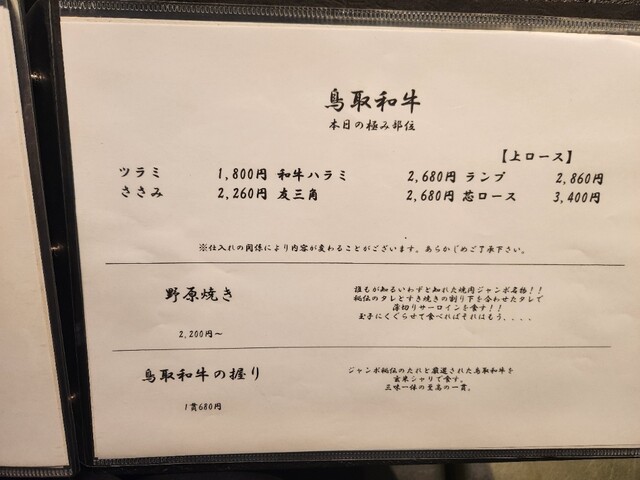 鳥取和牛
本日の極み部位
【上ロース】
ツラミ 1,800円 和牛ハラミ 2,680円 ランプ 2,860円
ささみ 2,260円 友三角 2,680円 芯ロース 3,400円
※仕入れの関係により内容が変わることがございます。あらかじめご了承下さい。
野原焼き
2,200円〜
誰もが知るいわずと知れた焼肉ジャンボ名物!!
秘伝のタレとすき焼きの割り下を合わせたタレで
薄切りサーロインを食す!!
玉子にくぐらせて食べればそれはもう、、、、
鳥取和牛の握り
1貫680円
ジャンボ秘伝のたれと厳選された鳥取和牛を
玄米シャリで食す。
三味一体の至高の一貫。